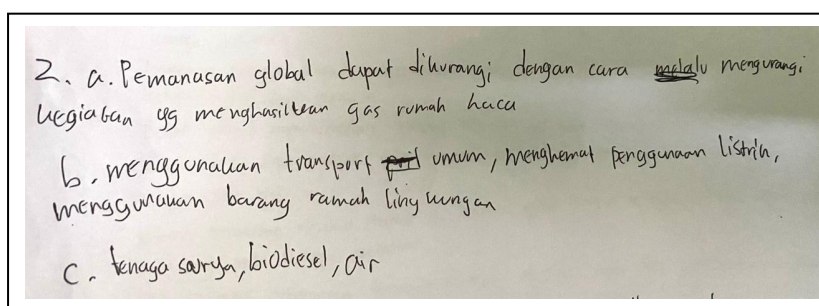 2. a. Pemanasan global dapat dikurangi dengan cara melalu mengurangi
kegiatan yg menghasilkan gas rumah kaca
b. menggunakan transport umum, menghemat penggunaan listrik,
menggunakan barang ramah lingkungan
c. tenaga surya, biodiesel, air